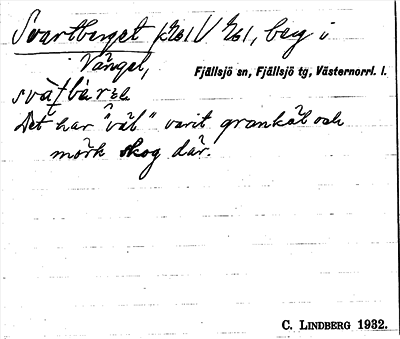 Svartberget , berg i
Vängel,
Fjällsjö sn, Fjällsjö tg, Västernorrl. l.
Det har "väl" varit grankål och
mörk skog där.
C. LINDBERG 1932.